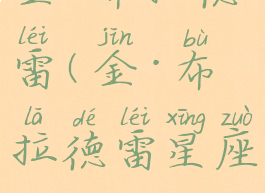 léi jīn bù
雷(金·布
lā dé léi xīng zuò
拉德雷星座